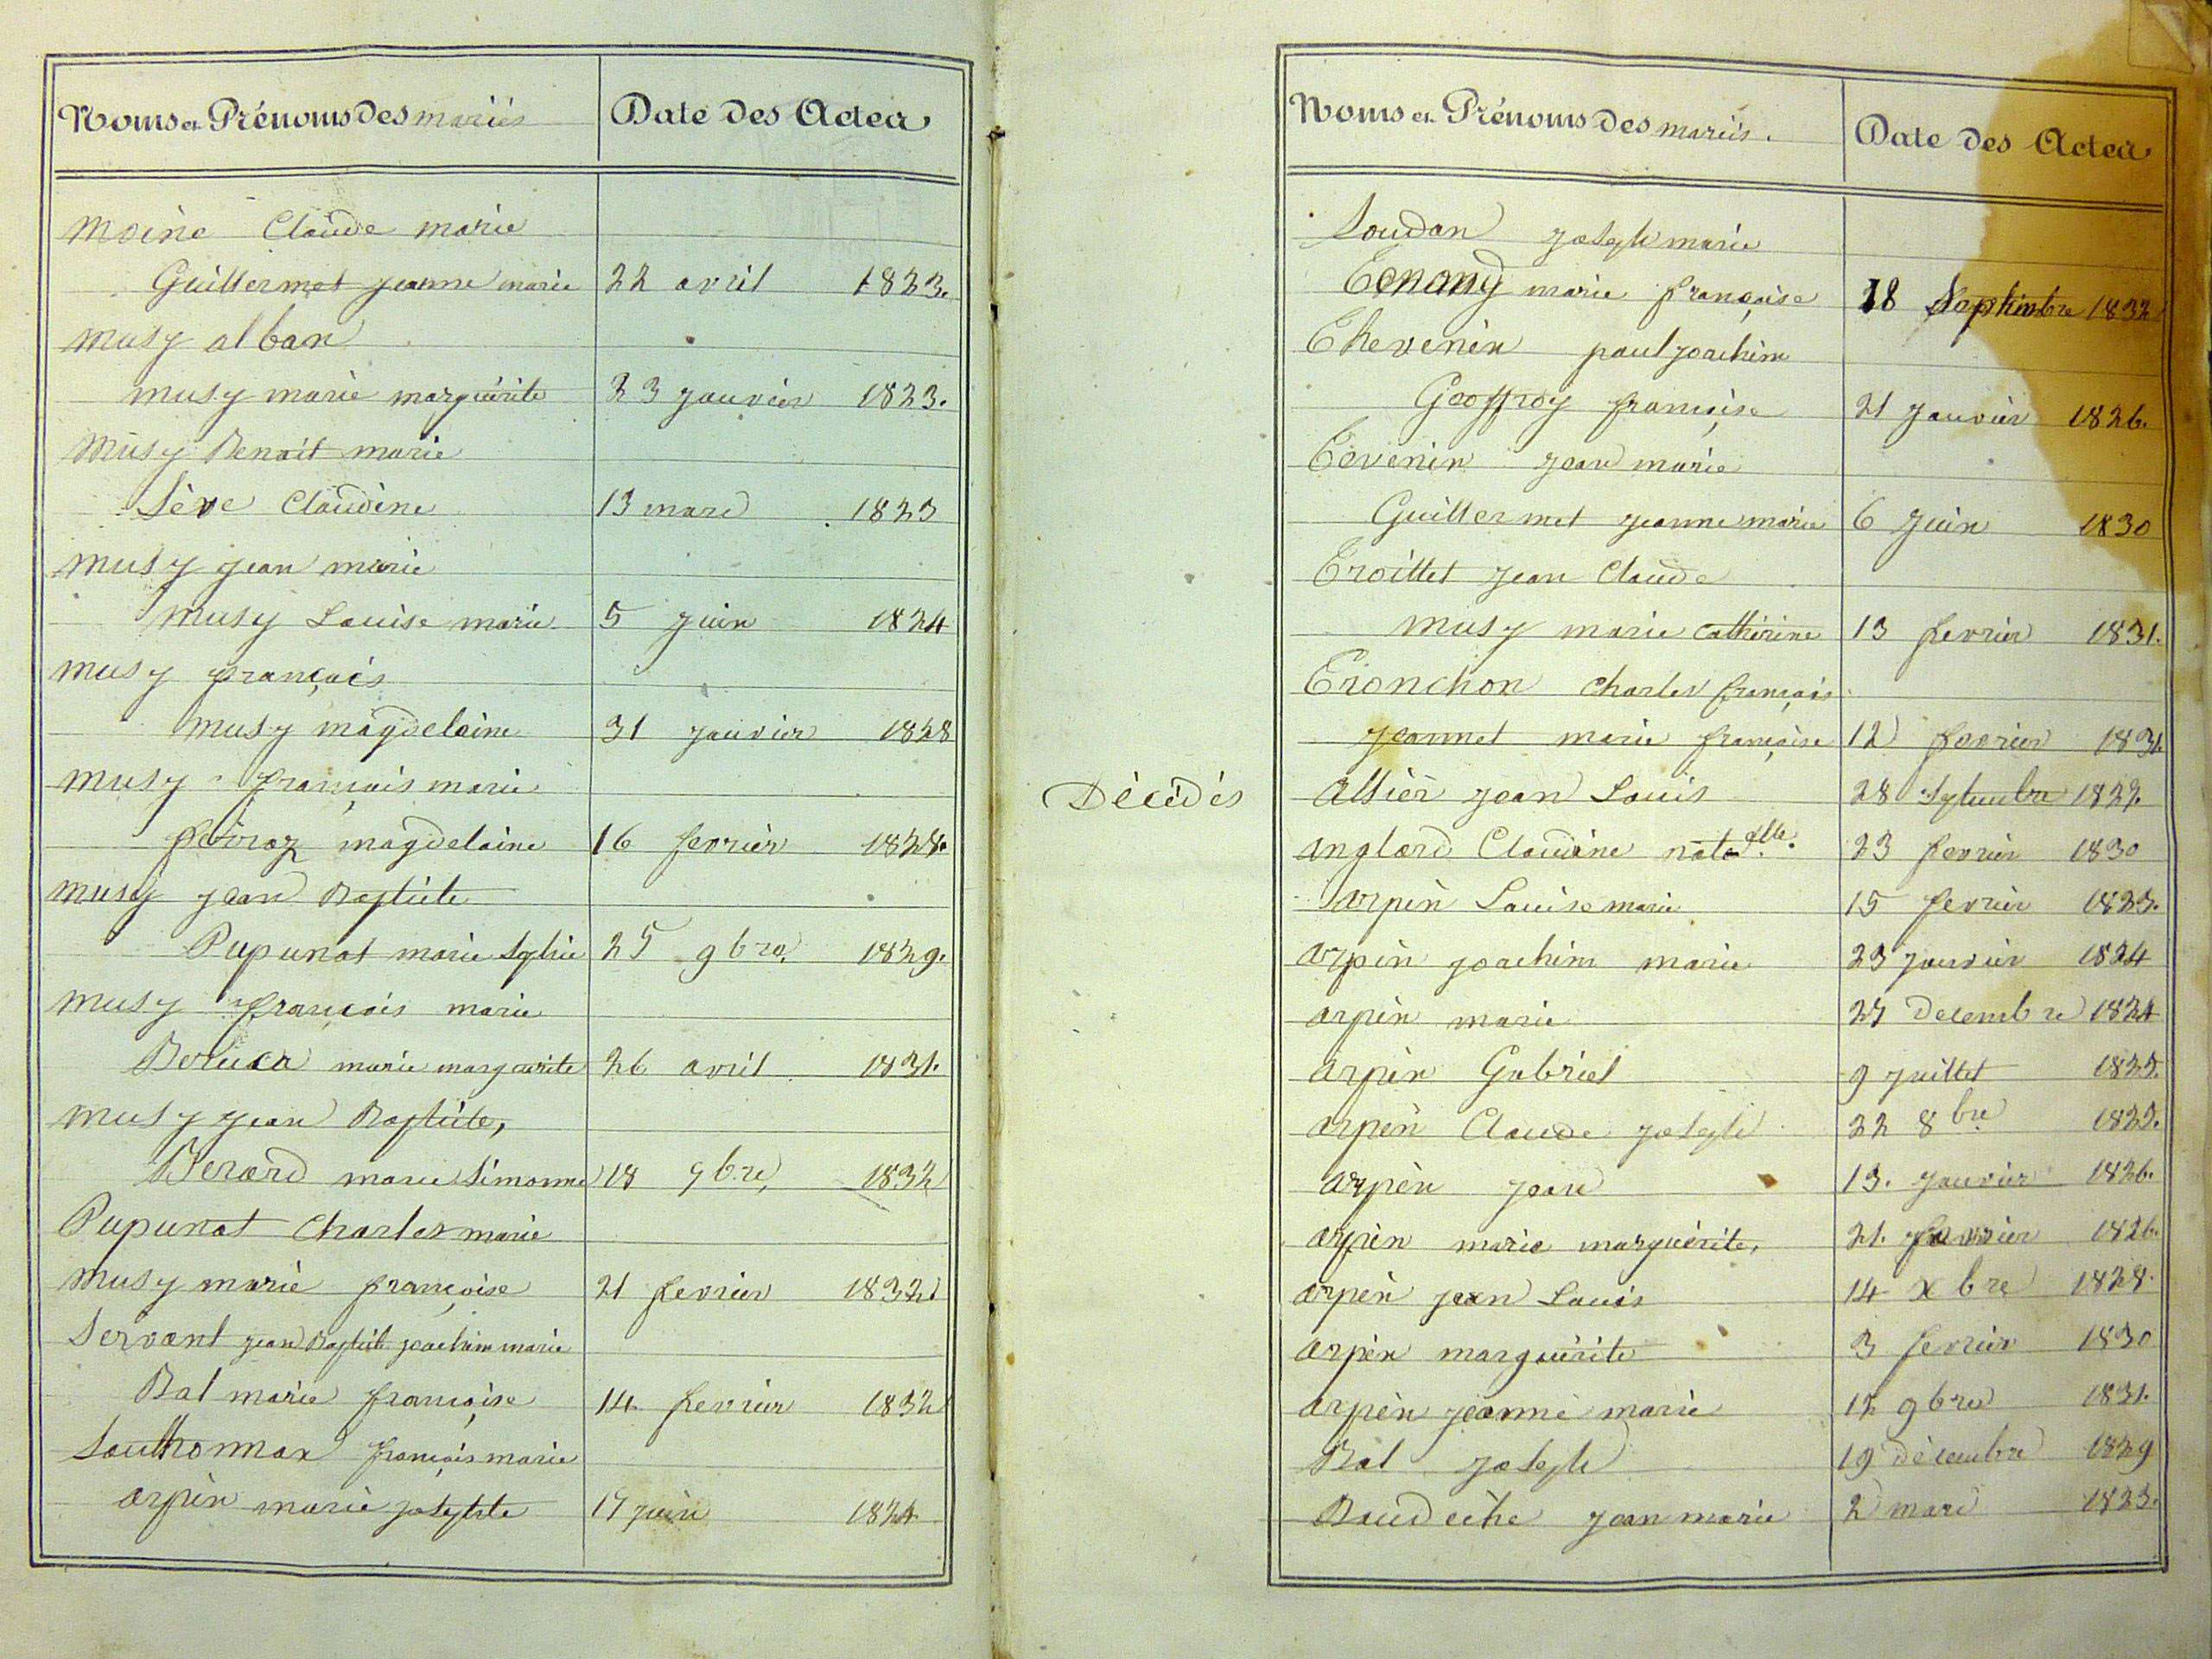 Noms et Prénoms des mariés Date des Actes
Moine Claude marie
Guillermet jeanne marie 22 avril 1823.
musy alban
musy marie marguérite 23 janvier 1823.
Musy Benoit marie
Sève Claudine 13 mars 1823
musy jean marie
musy Louise marie 5 juin 1824
musy françois
musy magdelaine 31 janvier 1828
musy françois marie
magdelaine 16 fevrier 1828.
musy jean Baptiste
Pupunat marie Sophie 25 9bre. 1829.
musy françois marie
marie marguerite 26 avril 1831.
musy jean Baptiste,
Berard marie Simonne 18 9bre, 1832
Pupunat Charles marie
musy marie françoise 21 fevrier 1832
Servant jean Baptiste joachim marie
Bal marie françoise 14 fevrier 1832
Southonnax françois marie
arpin marie josephte 17 juin 1824
Noms et Prénoms des mariés. Date des Actes
Soudan joseph marie
Tenand marie françoise 18 Septembre 1832
Thevenin paul joachim
Geoffroy françoise 21 janvier 1826.
Tevenin jean marie
Guillermet jeanne marie 6 juin 1830
Troillet jean Claude
musy marie cathérine 13 fevrier 1831.
Tronchon charles françois
jeannet marie françoise 12 fevrier 1831.
Décédés
Allier jean Louis 28 Septembre 1827.
anglard Claudine natelle. 23 fevrier 1830
arpin Louise marie 15 fevrier 1823.
arpin joachim marie 23 janvier 1824
arpin marie 27 Decembre 1824
arpin Gabriel 9 juillet 1825.
arpin Claude joseph 22 8bre 1825.
arpin jean 13. janvier 1826.
arpin marie marguérite, 21. fevrier 1826.
arpin jean Louis 14 Xbre 1828.
arpin marguérite 3 fevrier 1830
arpin jeanne marie 17 9bre 1831.
Bal joseph 19 décembre 1829
jean marie 2 mars 1823.